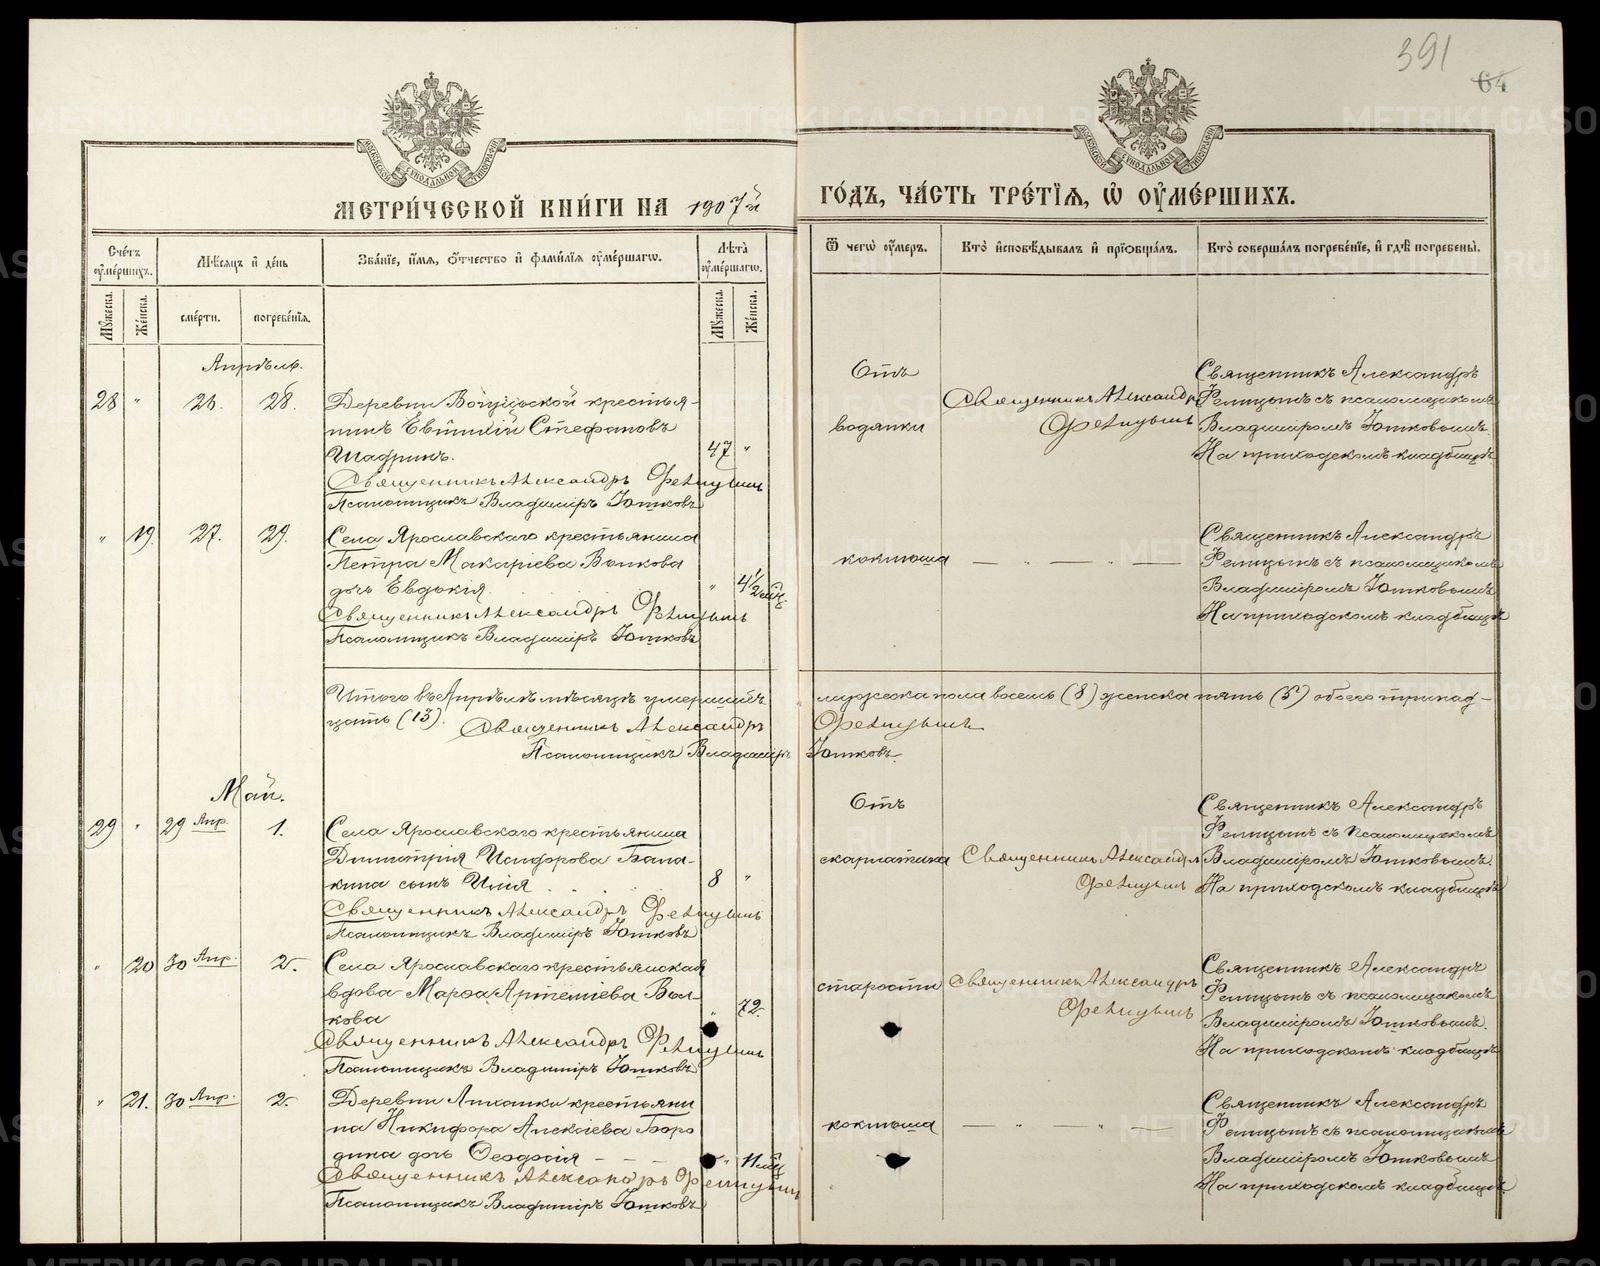 391
64
МЕТРИ́ЧЕСКОЙ КНИ́ГИ НА 1907й
ГО́ДЪ, ЧА́СТЬ ТРЕ́ТІѦ, Ѡ҆ ОУ҆МЕ́РШИХЪ.
Счётъ оу҆ме́ршихъ.
Мѣ́сяцъ и҆ де́нь
Зва́нїе, и҆́мя, ѻ҆́тчество и҆ фами́лїя оу҆ме́ршагѡ.
Лѣ́та оу҆ме́ршагѡ.
Мꙋ́жеска.
Же́нска.
сме́рти.
погребе́нїя.
Мꙋ́жеска.
Же́нска.
Ѿ чегѡ̀ оу҆́меръ.
Кто̀ и҆сповѣ́дывалъ и҆ прїѡбща́лъ.
Кто̀ соверша́лъ погребе́нїе, и҆ гдѣ̀ погребены̀.
Апрѣль.
28 " 26. 28.
Деревни крестья-
нинъ Евѳимій Стефановъ
Шадринъ. 47 "
Священникъ Александръ
Псаломщикъ Владиміръ Ютковъ
Отъ
водянки
Священникъ Александръ
Священникъ Александръ
съ псаломщикомъ
Владиміромъ Ютковымъ.
На приходскомъ кладбищѣ.
" 19. 27. 29.
Села Ярославскаго крестьянина
Петра Макаріева Волкова
дочь Евдокія. " 4½ мѣс.
Священникъ Александръ
Псаломщикъ Владиміръ Ютковъ
коклюша — " — " —
Священникъ Александръ
съ псаломщикомъ
Владиміромъ Ютковымъ
На приходскомъ кладбищѣ
Итого въ Апрѣлѣ мѣсяцѣ умершихъ мужеска пола восемь (8) женска пять (5) обоего тринад-
цать (13). Священникъ Александръ
Псаломщикъ Владиміръ Ютковъ
Май.
29 " 29 Апр. 1.
Села Ярославскаго крестьянина
Димитрія Исидорова Бала-
кина сынъ Илія 8 "
Священникъ Александръ
Псаломщикъ Владиміръ Ютковъ
Отъ
скарлатина
Священникъ Александръ
Священникъ Александръ
съ псаломщикомъ
Владиміромъ Ютковымъ.
На приходскомъ кладбищѣ
" 20 30 Апр. 2.
Села Ярославскаго крестьянская
вдова Марѳа Артеміева Вол-
кова " 72.
Священникъ Александръ
Псаломщикъ Владиміръ Ютковъ
старости
Священникъ Александръ
Священникъ Александръ
съ псаломщикомъ
Владиміромъ Ютковымъ.
На приходскомъ кладбищѣ
" 21. 30 Апр. 2.
Деревни крестьяни
на Никифора Алексіева Боро
дина дочь Ѳеодосія — — — " 11 мѣс
Священникъ Александръ
Псаломщикъ Владиміръ Ютковъ
коклюша — " — " —
Священникъ Александръ
съ псаломщикомъ
Владиміромъ Ютковымъ
На приходскомъ кладбищѣ.